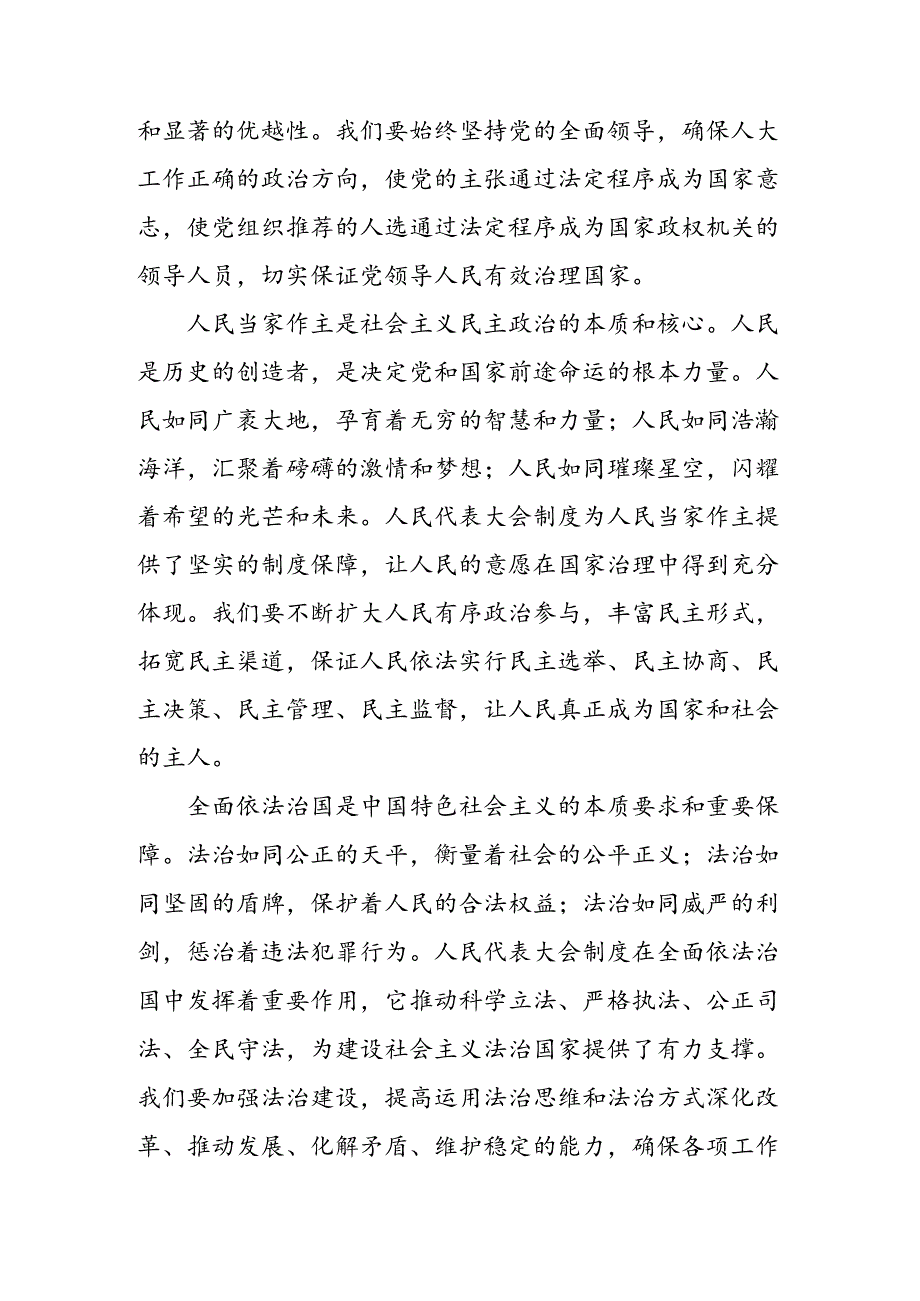 和显著的优越性。我们要始终坚持党的全面领导，确保人大
工作正确的政治方向，使党的主张通过法定程序成为国家意
志，使党组织推荐的人选通过法定程序成为国家政权机关的
领导人员，切实保证党领导人民有效治理国家。
人民当家作主是社会主义民主政治的本质和核心。人民
是历史的创造者，是决定党和国家前途命运的根本力量。人
民如同广袤大地，孕育着无穷的智慧和力量；人民如同浩瀚
海洋，汇聚着磅礴的激情和梦想；人民如同璀璨星空，闪耀
着希望的光芒和未来。人民代表大会制度为人民当家作主提
供了坚实的制度保障，让人民的意愿在国家治理中得到充分
体现。我们要不断扩大人民有序政治参与，丰富民主形式，
拓宽民主渠道，保证人民依法实行民主选举、民主协商、民
主决策、民主管理、民主监督，让人民真正成为国家和社会
的主人。
全面依法治国是中国特色社会主义的本质要求和重要保
障。法治如同公正的天平，衡量着社会的公平正义；法治如
同坚固的盾牌，保护着人民的合法权益；法治如同威严的利
剑，惩治着违法犯罪行为。人民代表大会制度在全面依法治
国中发挥着重要作用，它推动科学立法、严格执法、公正司
法、全民守法，为建设社会主义法治国家提供了有力支撑。
我们要加强法治建设，提高运用法治思维和法治方式深化改
革、推动发展、化解矛盾、维护稳定的能力，确保各项工作